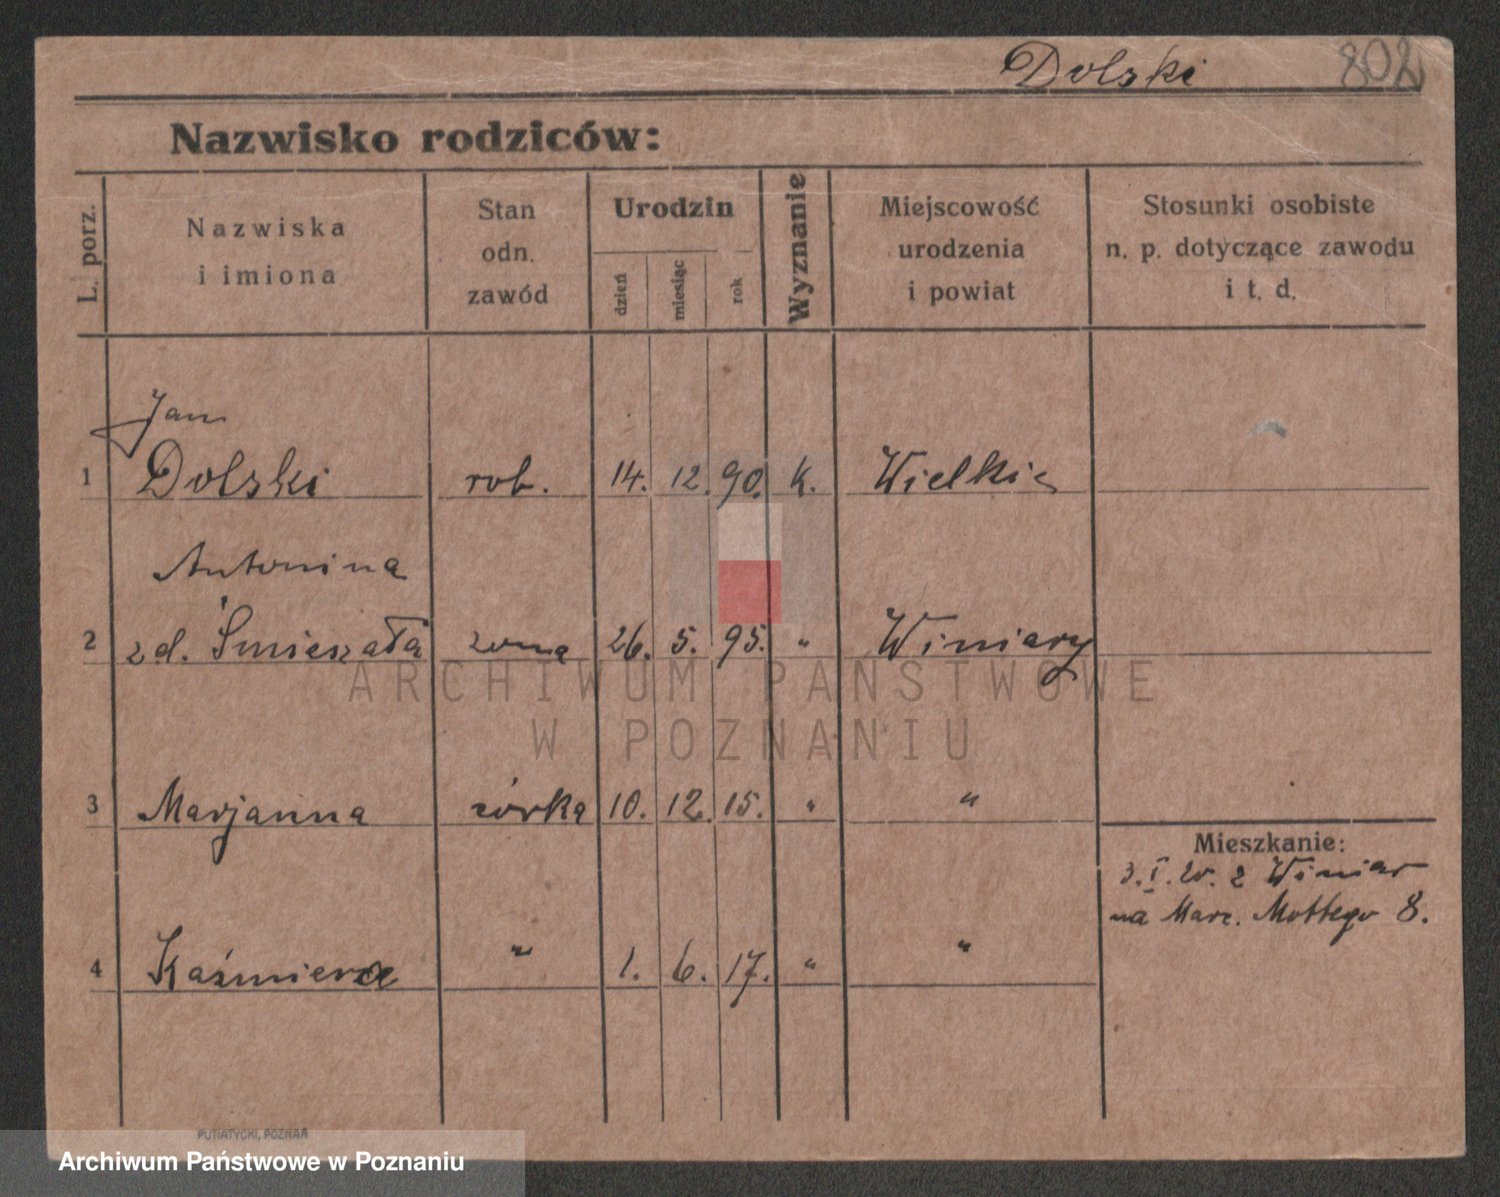 Dolski 802
Nazwisko rodziców:
L. porz.
Nazwiska
i imiona
Stan
odn.
zawód
Urodzin
dzień
miesiąc
rok
Wyznanie
Miejscowość
urodzenia
i powiat
Stosunki osobiste
n. p. dotyczące zawodu
i t. d.
Jan
1 Dolski rob. 14. 12. 90. k. Wielkie
Antonina
2 z d. Śmieszała żona 26. 5. 95. " Winiary
ARCHIWUM PAŃSTWOWE
W POZNANIU
3 Marjanna córka 10. 12. 15. " "
Mieszkanie:
3. I. 20. z Winiar
na Marc. Mottego 8.
4 Kaźmierz " 1. 6. 17. " "
PUTIATYCKI, POZNAŃ
Archiwum Państwowe w Poznaniu